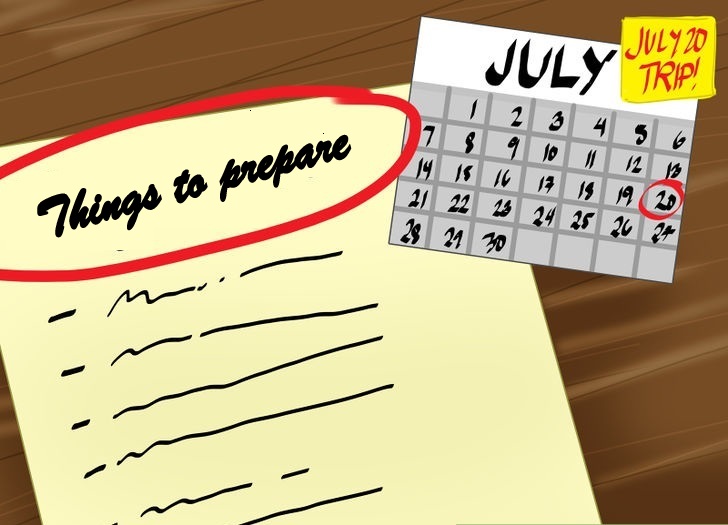 Things to prepare
JULY
JULY 20
TRIP!
1 2 3 4 5 6
7 8 9 10 11 12 13
14 15 16 17 18 19 20
21 22 23 24 25 26 27
28 29 30